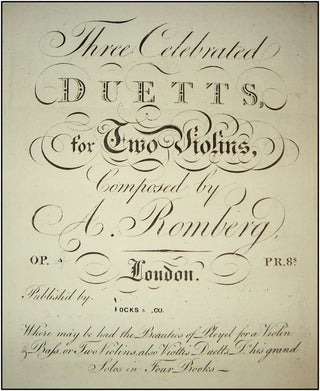 Three Celebrated
DUETTS,
for Two Violins,
Composed by
A. Romberg,
OP. 4 PR. 8s
London.
Published by
OCKS & CO.
Where may be had the Beauties of Pleyel for a Violin
& Bass, or Two Violins, also Viottis Duetts, & his grand
Solos in Four Books